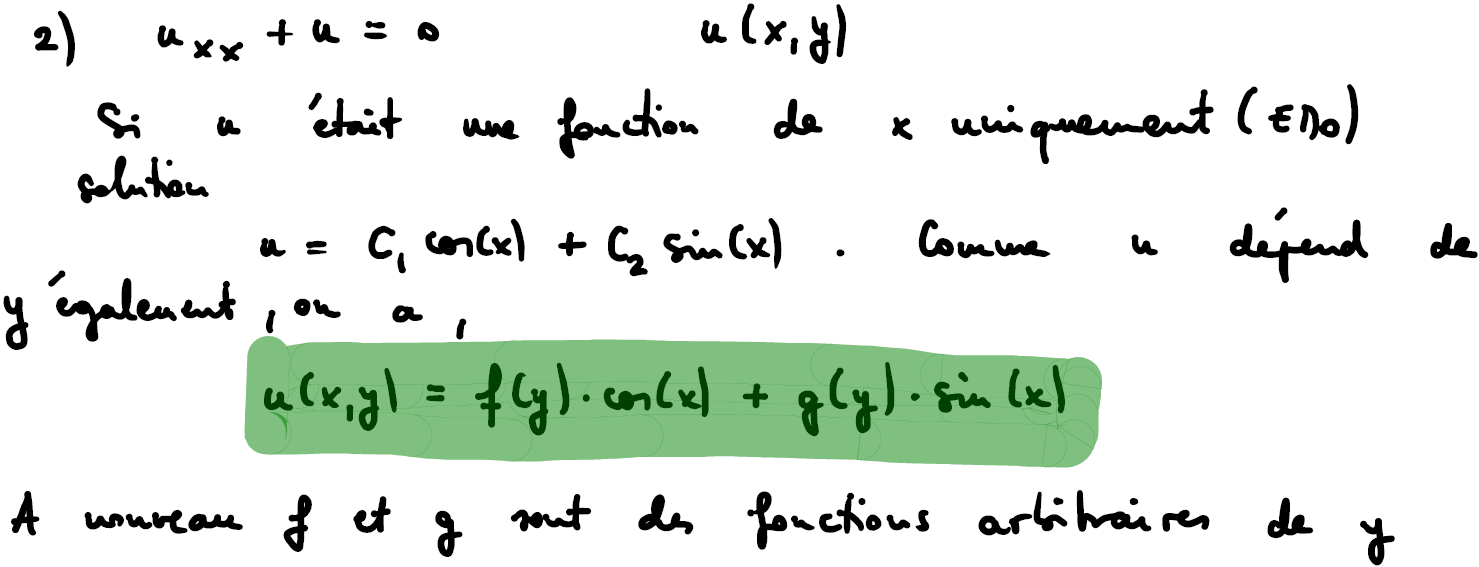 2) u_xx + u = 0 u(x,y)
Si u était une fonction de x uniquement (EDO)
solution
u = C₁ cos(x) + C₂ sin(x) . Comme u dépend de
y également, on a,
u(x,y) = f(y)·cos(x) + g(y)·sin(x)
A nouveau f et g sont des fonctions arbitraires de y